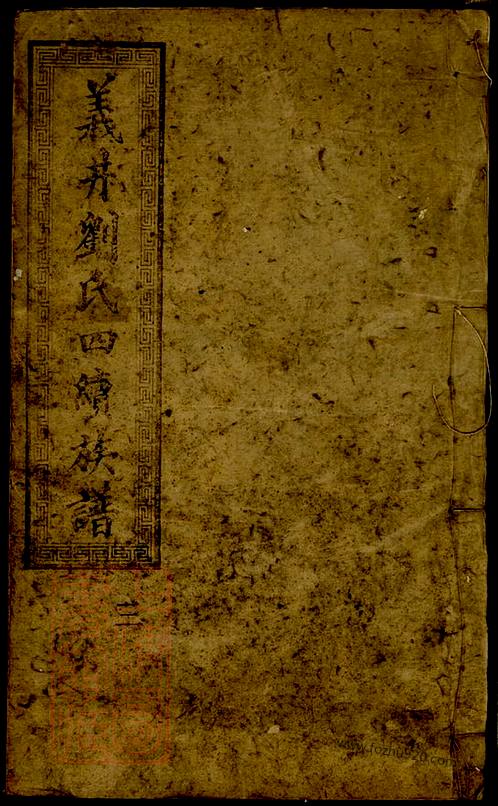 義井劉氏四續族譜
三
www.fozhu920.com